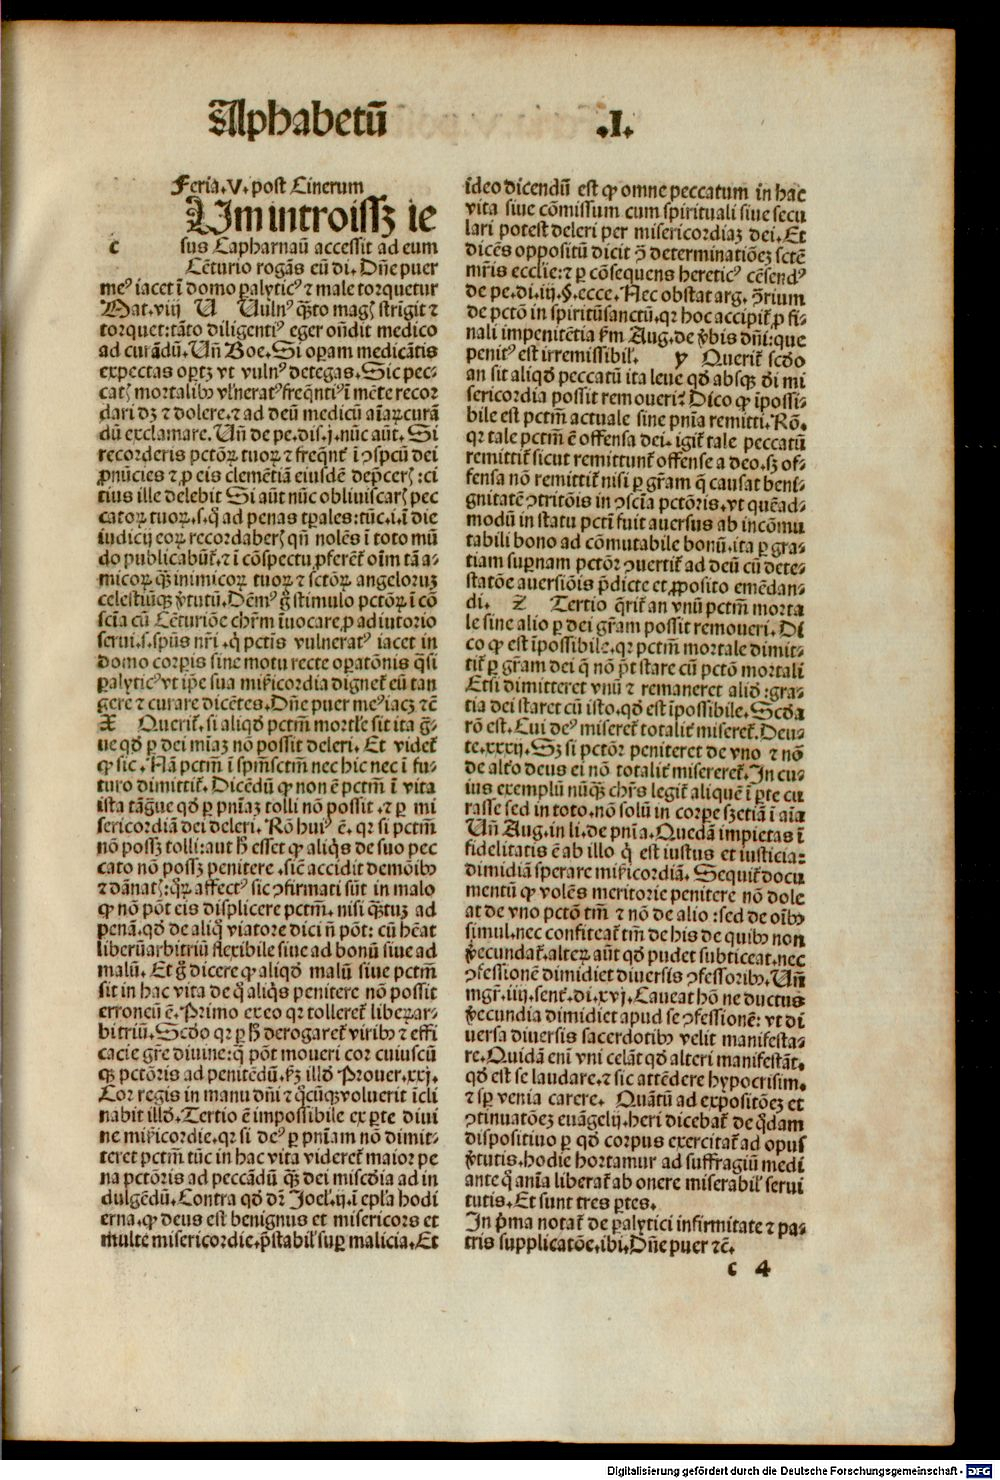 Alphabetū .I.
Feria.V.post Cinerum
Um introissꝫ ie
c sus Capharnaū accessit ad eum
Cēturio rogās eū di. Dn̄e puer
meꝰ iacet ī domo ꝑalyticꝰ ⁊ male torquetur
Mat.viij V Uulnꝰ q̄to magꝭ strīgit ⁊
torquet:tāto diligentiꝰ eger on̄dit medico
ad curādū. Un̄ Boe. Si oꝑam medicātis
expectas oꝑtꝫ vt vulnꝰ detegas. Sic pec-
catꝭ mortalibꝫ vl̓neratꝰ freq̄ntiꝰ ī mēte recor
dari dꝫ ⁊ dolere.⁊ ad deū medicū aīaꝝ curā
dū exclamare. Un̄ de pe.dis.j.nūc aūt. Si
recorderis pctōꝝ tuoꝝ ⁊ freq̄nt̄ ī ꝯspcū dei
ꝓnūcies ⁊ ꝓ eis clemētiā eiusdē dep̄cerꝭ:ci
tius ille delebit Si aūt nūc obliviscarꝭ pec
catoꝝ tuoꝝ.s.q̄ ad penas tꝑales:tūc.i.ī die
iudicij eoꝝ recordaberꝭ qn̄ nolēs ī toto mū
do publicabūt̄.⁊ ī cōspectu ꝓferēt̄ oīm tā a-
micoꝝ q̄ꝫ inimicoꝝ tuoꝝ ⁊ sctōꝝ angeloruꝫ
celestiūqꝫ v̓tutū. Dēmꝰ g̊ stimulo pctōꝝ ī cō
scīa cū Cēturiōe chr̄m īuocare, ꝓ adiutorio
serui.s.spūs nr̄i .q̇ pctīs vulneratꝰ iacet in
domo corꝑis sine motu recte oꝑatōnis q̄si
ꝑalyticꝰ vt ip̄e sua mīcordia dignet̄ eū tan
gere ⁊ curare dicētes. Dn̄e puer meꝰ iacꝫ ⁊c̄
X Querit̄.si aliqd̓ pctm̄ mortl̓e sit ita g̓-
ue qd̓ ꝑ dei mīaꝫ nō possit deleri. Et videt̄
ꝙ sic. Nā pctm̄ ī spm̄sctm̄ nec hic nec ī fu-
turo dimittit̄. Dicēdū ꝙ non ē pctm̄ ī vita
ista tāgue qd̓ ꝑ pn̄iaꝫ tolli nō possit .⁊ ꝑ mi
sericordiā dei deleri. Rō huiꝰ ē. qꝛ si pctm̄
nō possꝫ tolli:aut h̓ esset ꝙ aliq̇s de suo pec
cato nō possꝫ penitere .sic̄ accidit demōibꝫ
⁊ dānatꝭ:q̊ꝝ affectꝰ sic ꝯfirmati sūt in malo
ꝙ nō pōt eis displicere pctm̄. nisi q̄tuꝫ ad
penā.qd̓ de aliq̊ viatore dici n̄ pōt: cū hēat
liberūarbitriū flexibile siue ad bonū siue ad
malū. Et g̊ dicere ꝙ aliqd̓ malū siue pctm̄
sit in hac vita de q̊ aliq̇s penitere nō possit
erroneū ē. Primo ex eo qꝛ tolleret̄ libeꝝar-
bitriū. Scd̓o qꝛ ꝑ h̓ derogaret̄ viribꝫ ⁊ effi
cacie gr̄e diuine:q̄ pōt moueri cor cuiuscū
qꝫ pctōris ad penitēdū. k̓ꝫ illd̓ Prouer.xxj.
Cor regis in manu dn̄i ⁊ q̊cūqꝫ voluerit īcli
nabit illd̓. Tertio ē impossibile ex ꝑte diui
ne mīcordie. qꝛ si deꝰ ꝑ pn̄iam nō dimit-
teret pctm̄ tūc in hac vita videret̄ maior pe
na pctōris ad peccādū q̄ꝫ dei miscd̓ia ad in
dulgēdū. Contra qd̓ dr̄ Joel̓.ij.ī epl̓a hodi
erna.ꝙ deus est benignus et misericors et
multe misericordie.p̄stabil̓ suꝑ malicia. Et
ideo dicendū est ꝙ omne peccatum in hac
vita siue cōmissum cum spirituali siue secu
lari potest deleri per misericordiaꝫ dei. Et
dicēs oppositū dicit ꝯ̄ determinatiōeꝫ sctē
mr̄is ecclīe:⁊ ꝑ cōsequens hereticꝰ cēsendꝰ
de pe.di.iij.§.ecce. Nec obstat arg. ꝯ̄rium
de pctō in spiritūsanctū.qꝛ hoc accipit̄ ꝓ fi-
nali impenitētia k̓m Aug.de v̓bis dn̄i:que
penitꝰ est irremissibil̓. y Querit̄ scd̓o
an sit aliqd̓ peccatū ita leue qd̓ absqꝫ d̓i mi
sericordia possit remoueri? Dico ꝙ īpossi-
bile est pctm̄ actuale sine pn̄ia remitti. Rō.
qꝛ tale pctm̄ ē offensa dei. igit̄ tale peccatū
remittit̄ sicut remittunt̄ offense a deo.sꝫ of-
fensa nō remittit̄ nisi ꝑ gr̄am q̄ causat beni-
gnitatē ꝯtritōis in ꝯscīa pctōris.vt quēad-
modū in statu pctī fuit auersus ab incōmu
tabili bono ad cōmutabile bonū.ita ꝑ gra-
tiam suꝑnam pctōr ꝯuertit̄ ad deū cū dete-
statōe auersiōis p̄dicte et ꝓposito emēdan-
di. z Tertio q̄rit̄ an vnū pctm̄ morta
le sine alio ꝑ dei gr̄am possit remoueri. Di
co ꝙ est īpossibile.qꝛ pctm̄ mortale dimit-
tit̄ ꝑ gr̄am dei q̄ nō pōt stare cū pctō mortali
Etsi dimitteret vnū ⁊ remaneret alid̓ :gra-
tia dei staret cū isto.qd̓ est īpossibile. Scd̓a
rō est. Cui deꝰ miseret̄ totalit̓ miseret̄. Deu-
te.xxxij. Sꝫ si pctōr peniteret de vno ⁊ nō
de alt̓o deus ei nō totalit̓ misereret̄. In cu-
ius exemplū nūqꝫ chr̄s legit̄ aliquē ī ꝑte cu
rasse sed in toto.nō solū in corꝑe sꝫ etiā ī aīa
Un̄ Aug.in li.de pn̄ia. Quedā impietas ī
fidelitatis ē ab illo q̇ est iustus et iusticia:
dimidiā sperare mīcordiā. Sequit̄ docu
mentū ꝙ volēs meritorie penitere nō dole
at de vno pctō tm̄ ⁊ nō de alio :sed de oībꝫ
simul.nec confiteat̄ tm̄ de his de quibꝫ non
v̓ecundat̄.alteꝝ aūt qd̓ pudet subticeat.nec
ꝯfessionē dimidiet diuersis ꝯfessoribꝫ. Un̄
mgr̄.iiij.sent̄.di.xvj. Caueat hō ne ductus
v̓ecundia dimidiet apud se ꝯfessionē: vt di
uersa diuersis sacerdotibꝫ velit manifesta-
re. Quidā enī vni celāt qd̓ alteri manifestāt.
qd̓ est se laudare.⁊ sic attēdere hypocrisim.
⁊ sꝑ venia carere. Quātū ad expositōeꝫ et
ꝯtinuatōeꝫ euāgelij.heri dicebat̄ de q̄dam
dispositiuo ꝑ qd̓ corpus exercitat̄ ad opus
v̓tutis.hodie hortamur ad suffragiū medi
ante q̊ anīa liberat̄ ab onere miserabil̓ serui
tutis. Et sunt tres ꝑtes.
In p̓ma notat̄ de ꝑalytici infirmitate ⁊ pa-
tris supplicatōe.ibi. Dn̄e puer ⁊c̄.
c 4
Digitalisierung gefördert durch die Deutsche Forschungsgemeinschaft - DFG